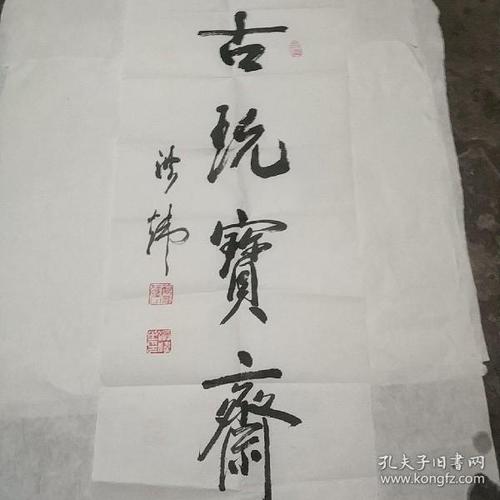 古玩寶齋
孔夫子旧書网
www.kongfz.com